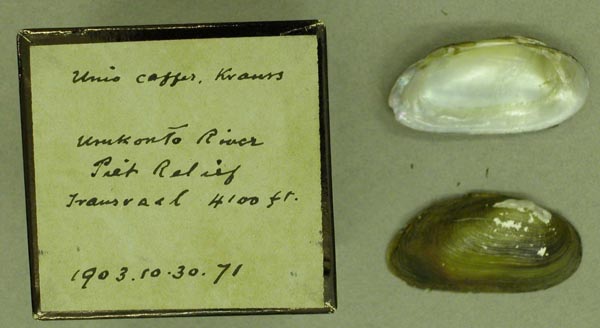 Unio caffer, Krauss
Umkonto River
Piet Relief
Transvaal 4100 ft.
1903.10.30.71